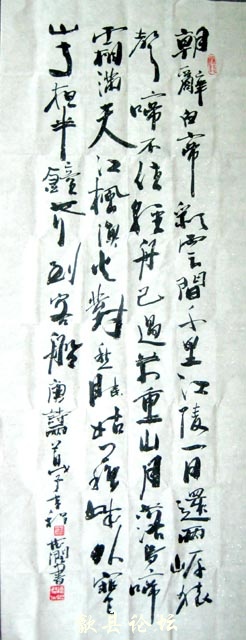 朝辭白帝彩雲間千里江陵一日還兩岸猿
聲啼不住輕舟已過萬重山月落烏啼
霜滿天江楓漁火對愁眠姑蘇城外寒
山寺夜半鐘聲到客船唐詩二首戊子書
歙县论坛